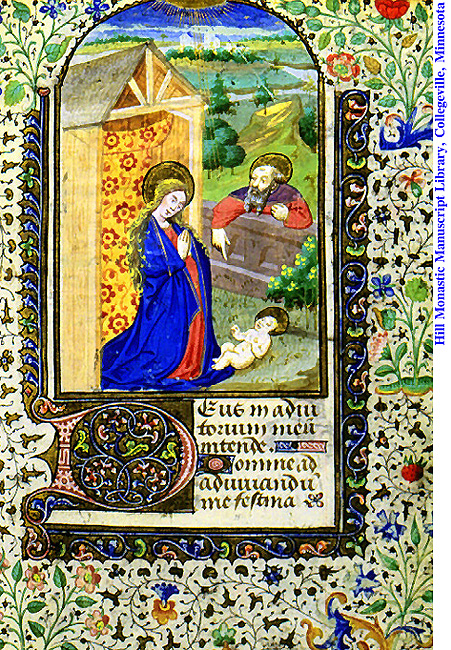 DEus in adiu
torium meū
intende.
Domine ad
adiuuandū
me festina
Hill Monastic Manuscript Library, Collegeville, Minnesota